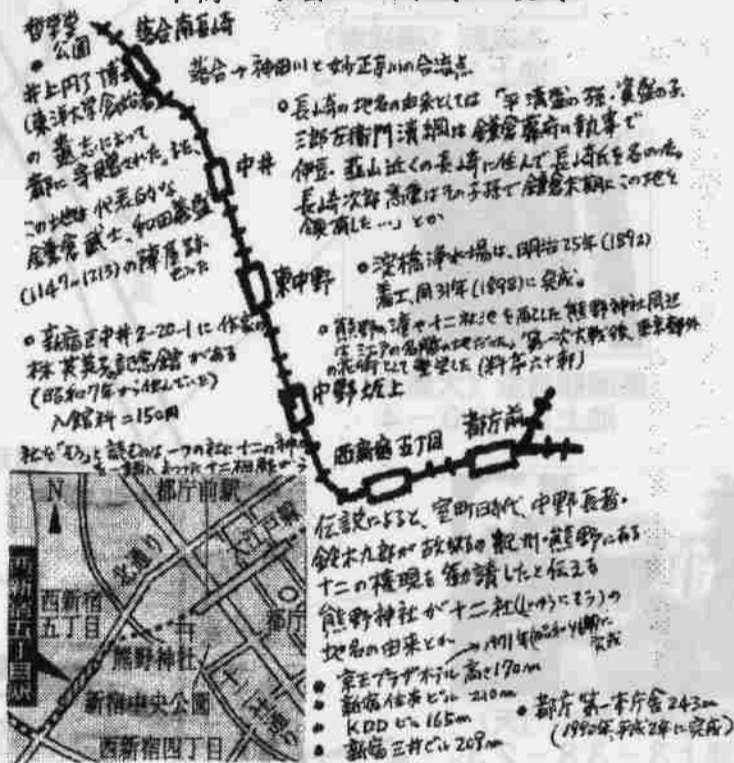 哲学堂
公園
落合南長崎
落合→神田川と妙正寺川の合流点
井上円了博士
(東洋大学創始者)
の遺志によって
都に寄贈された。また、
この地は代表的な
鎌倉武士、和田義盛
(1147〜1213)の陣屋跡
でした
長崎の地名の由来としては「平清盛の孫・資盛の子
三郎左衛門清綱は鎌倉幕府の執事で
伊豆・韮山近くの長崎に住んで長崎氏を名のった。
長崎次郎高重はその子孫で鎌倉末期にこの地を
領有した…」とか
中井
東中野
淀橋浄水場は、明治25年(1892)
着工、同31年(1898)に完成。
新宿区中井2-20-1に作家の
林芙美子記念館がある
(昭和7年から住んでいた)
入館料=150円
熊野の滝や十二社池を配した熊野神社周辺
は江戸の名勝の地だった。第一次大戦後、東京郊外
の花街として繁栄した(料亭六十軒)
中野坂上
西新宿五丁目
都庁前
社を「そう」と読むのは一つの社に十二の神
伝説によると、室町時代、中野長者・
鈴木九郎が故郷の紀州・熊野にある
十二の権現を勧請したと伝える
熊野神社が十二社(じゅうにそう)の
地名の由来とか
1971年(昭和46年)に
完成
京王プラザホテル 高さ170m
新宿住友ビル 210m
KDDビル 165m
新宿三井ビル 209m
都庁第一本庁舎 243m
(1990年、平成2年に完成)
N
都庁前駅
北通り
大江戸線
西新宿
五丁目
西新宿五丁目駅
都庁
熊野神社
新宿中央公園
十二社通り
西新宿四丁目